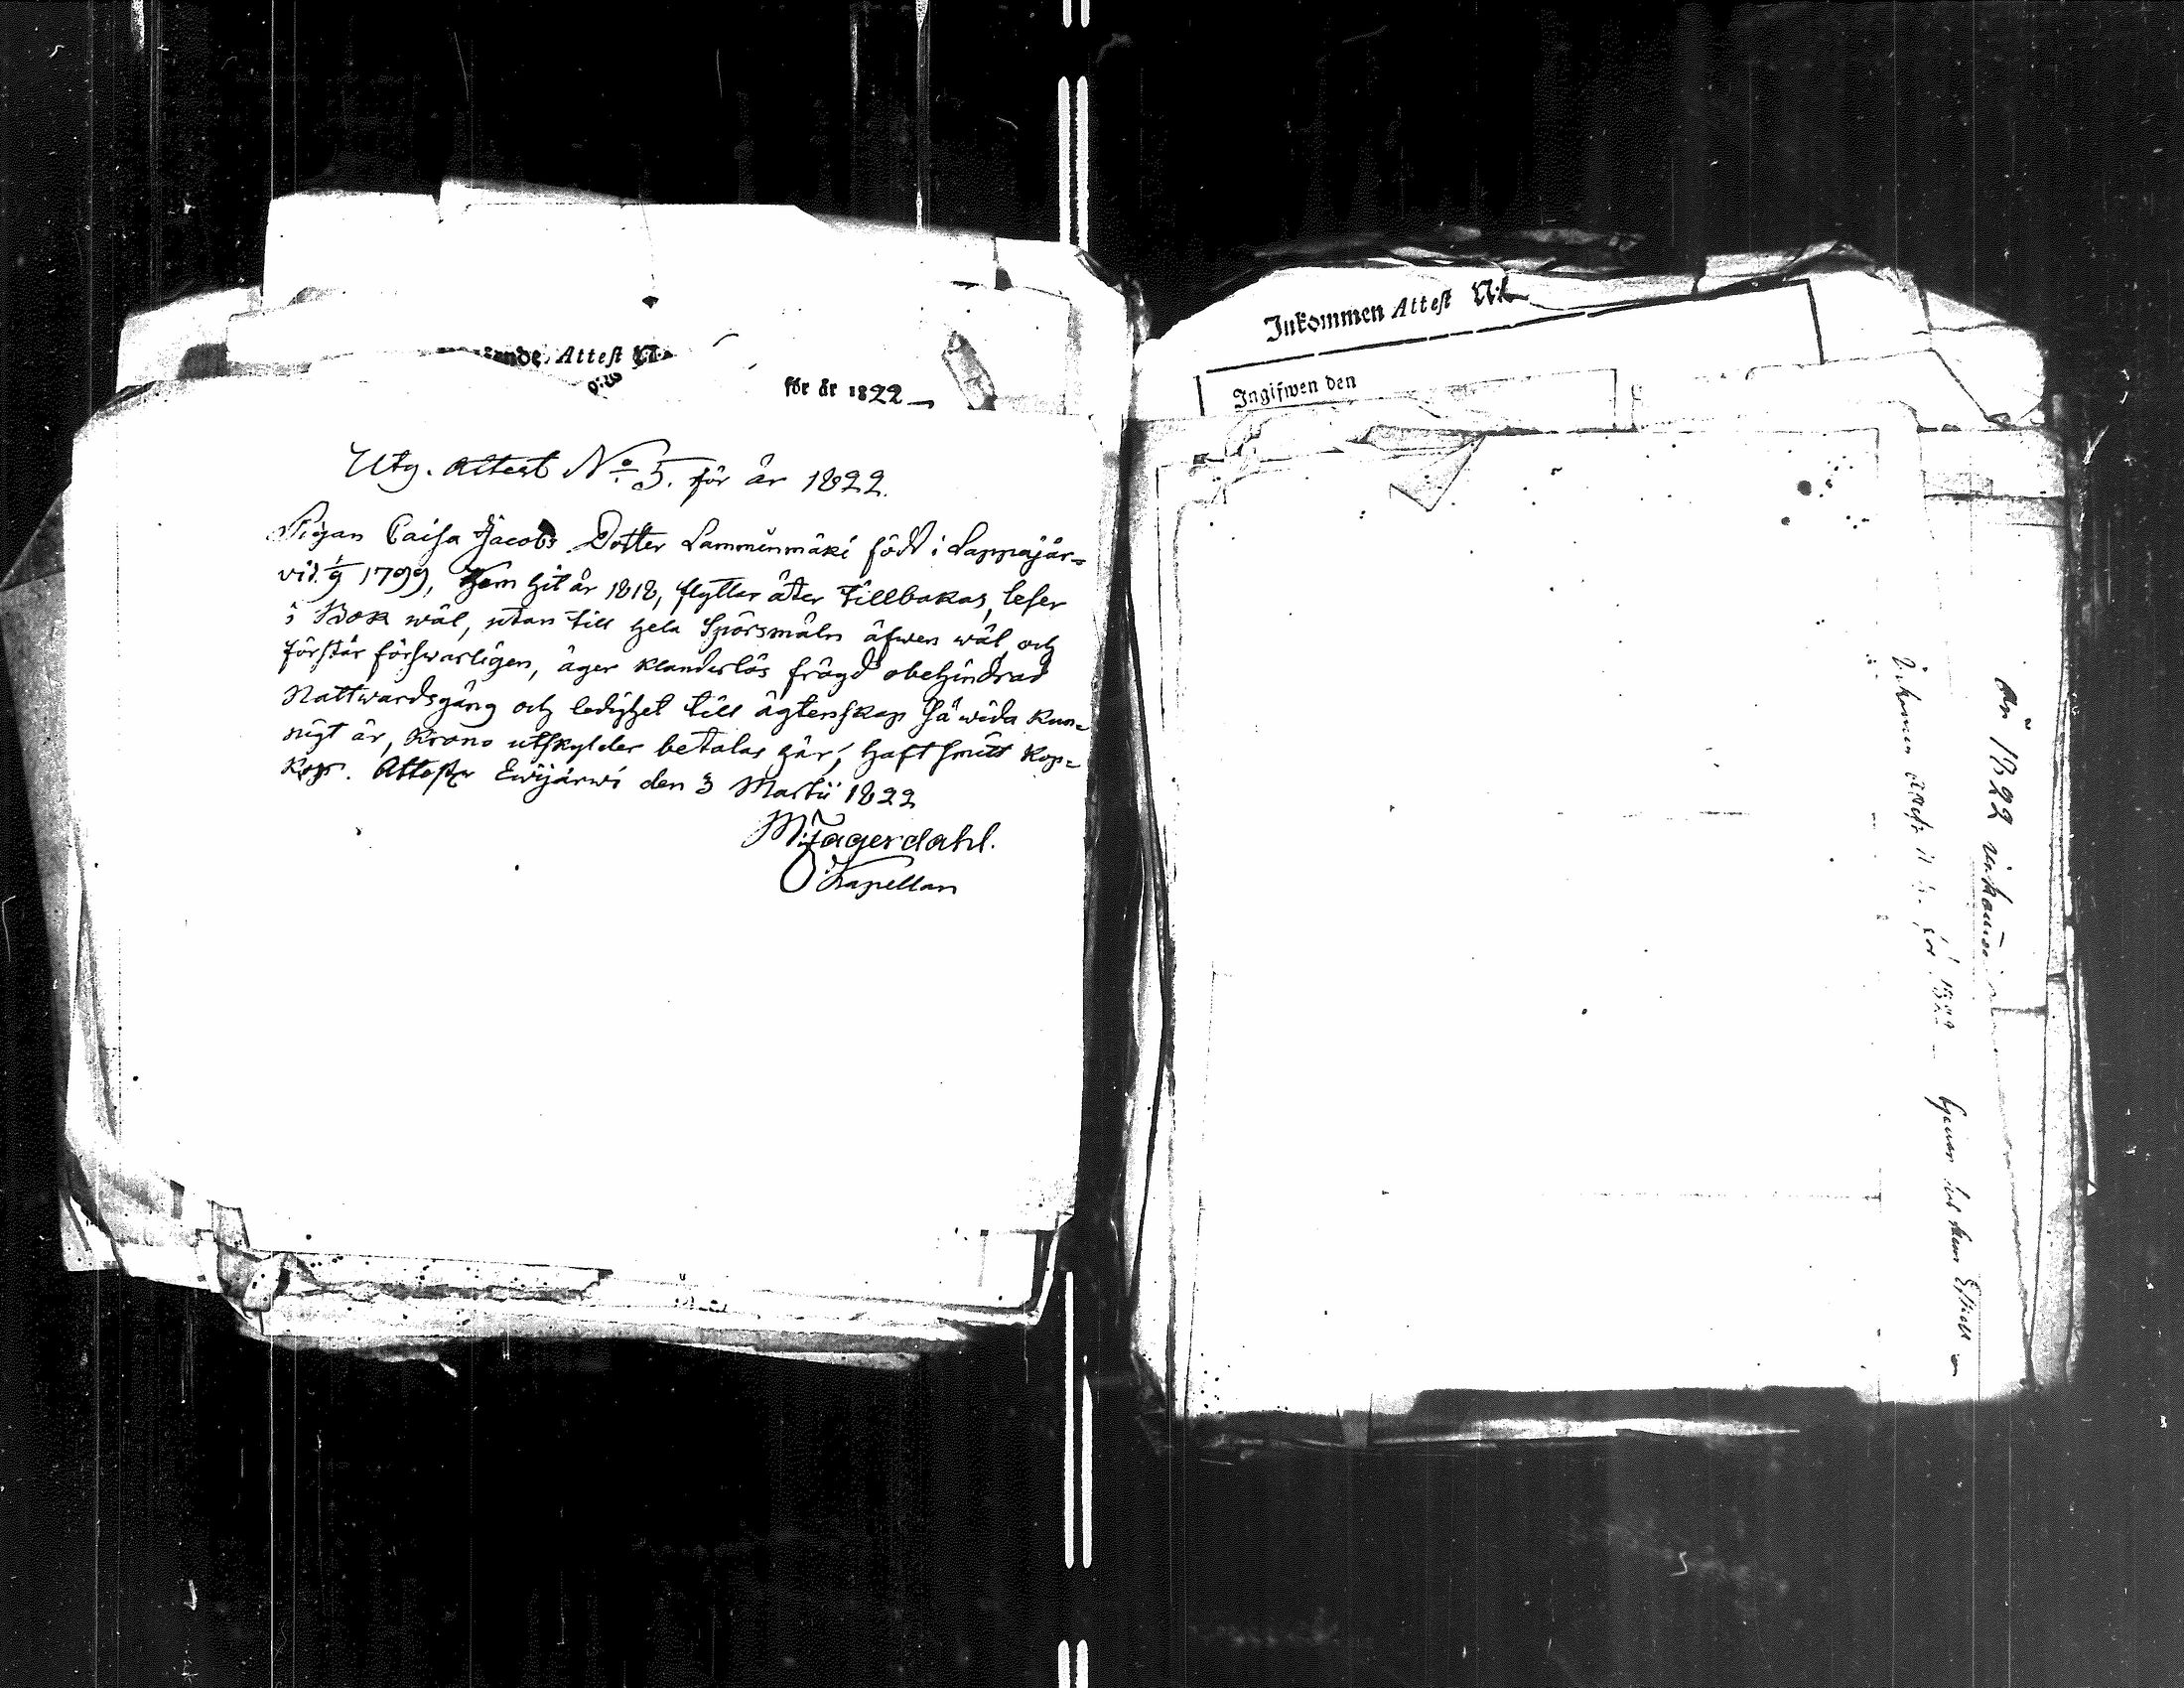 Attest N:o
för år 1822
Utg. Attest No 5. för år 1822.
Pigan Caisa Jacobs Dotter Lamminmäki född i Lappajär=
vi d. 1/9 1799, Kom hit år 1818, flyttar åter tillbakas, läser
i Bok wäl, utan till hela Spörsmåln äfwen wäl, och
förstår förswarligen, äger klanderlös frägd obehindrad
Nattwardsgång och ledighet till ägtenskap så wida kun=
nigt är, Krono utskylder betalas här, haft smitt kop=
kop. Attester Ewijärwi den 3 Martii 1822
M: Fagerdahl.
Kapellan
Inkommen Attest N:o
Ingifwen den
år 1822 inkomne
1822